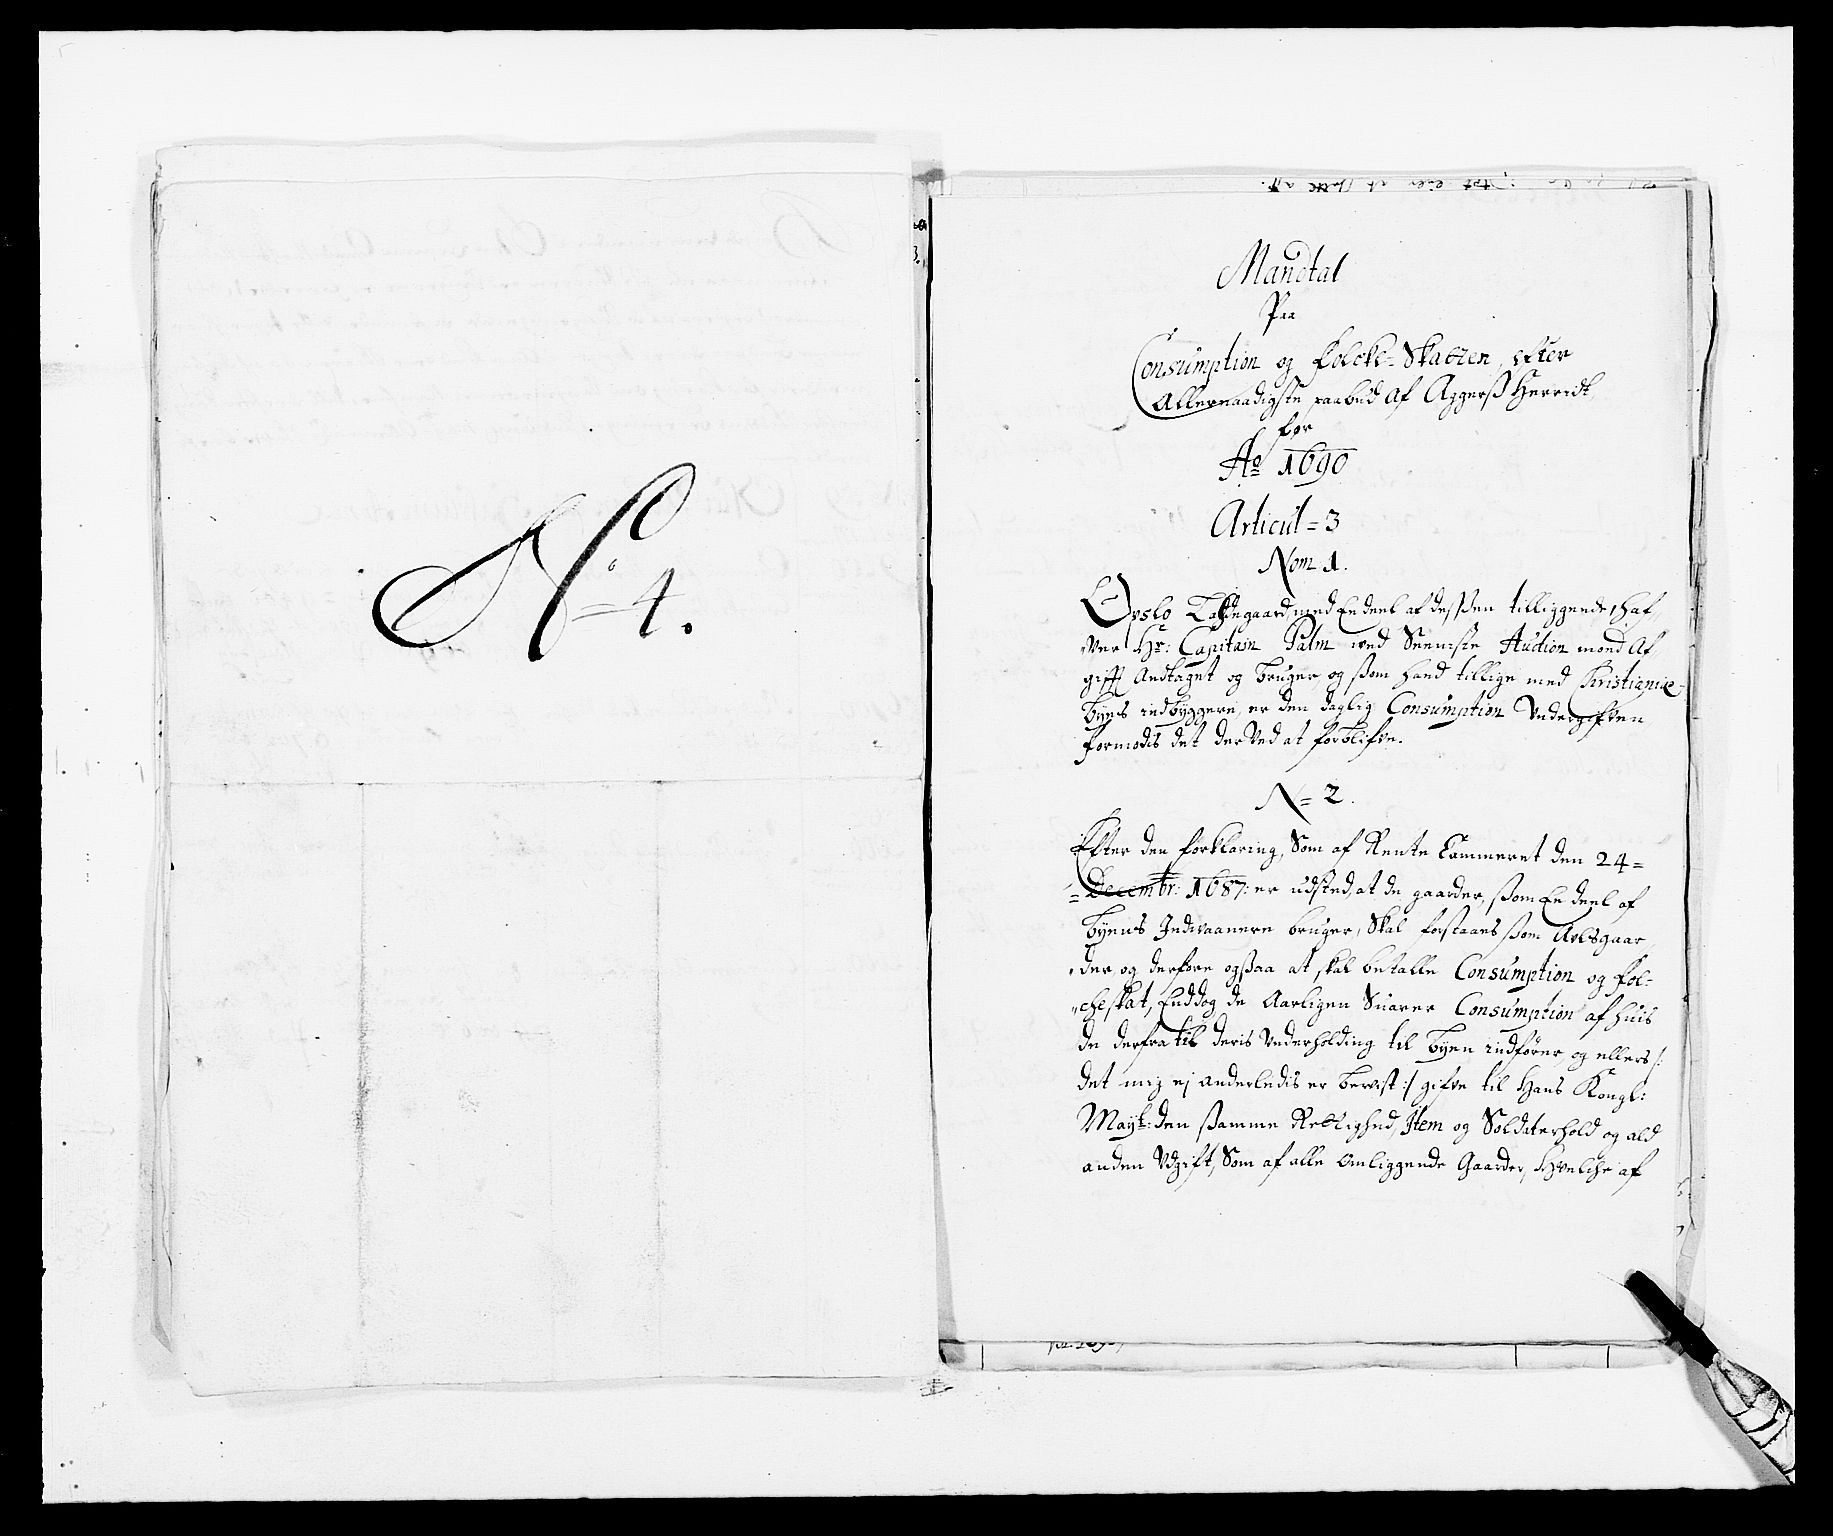 No 4.
Mandtal
Paa
Consumption og Folcke-Skatten, efter
Allernaadigste paabud af Aggerss Herridt
for
Ao 1690
Articul = 3
Nom 1.
Opslo Ladegaard, med En deel af dessen tilliggende, haf,,
,,ver Hr: Capitain Palm ved Seeniste Auction mond Af,,
gifft Andtaget og bruger, og ssom hand tillige med Christianiæ
byes indbyggere, er den daglig Consumption Undergifven
formodis det derved at forblifve.
N = 2.
Efter den forklaring, Som af Rente Cammeret den 24 =
= Decembr: 1687: er udsted, at de gaarder, ssom En deel af
byens Indvaanere bruger, Skal forstaaes ssom Avlsgaar,,
,,der, og derfore ogssaa at skal betalle Consumption og fol-
,,cheskat, Enddog de Aarligen Suarer Consumption af huis
de derfra til deris Underholding til byen indfører, og ellers /:
det mig ej anderledis er bevist :/ gifve til Hans Kongl:
Mayt: den ssamme Rettighed, Item og Soldaterhold og ald
anden Udgift, Som af alle omliggende Gaarder, Hvelche af